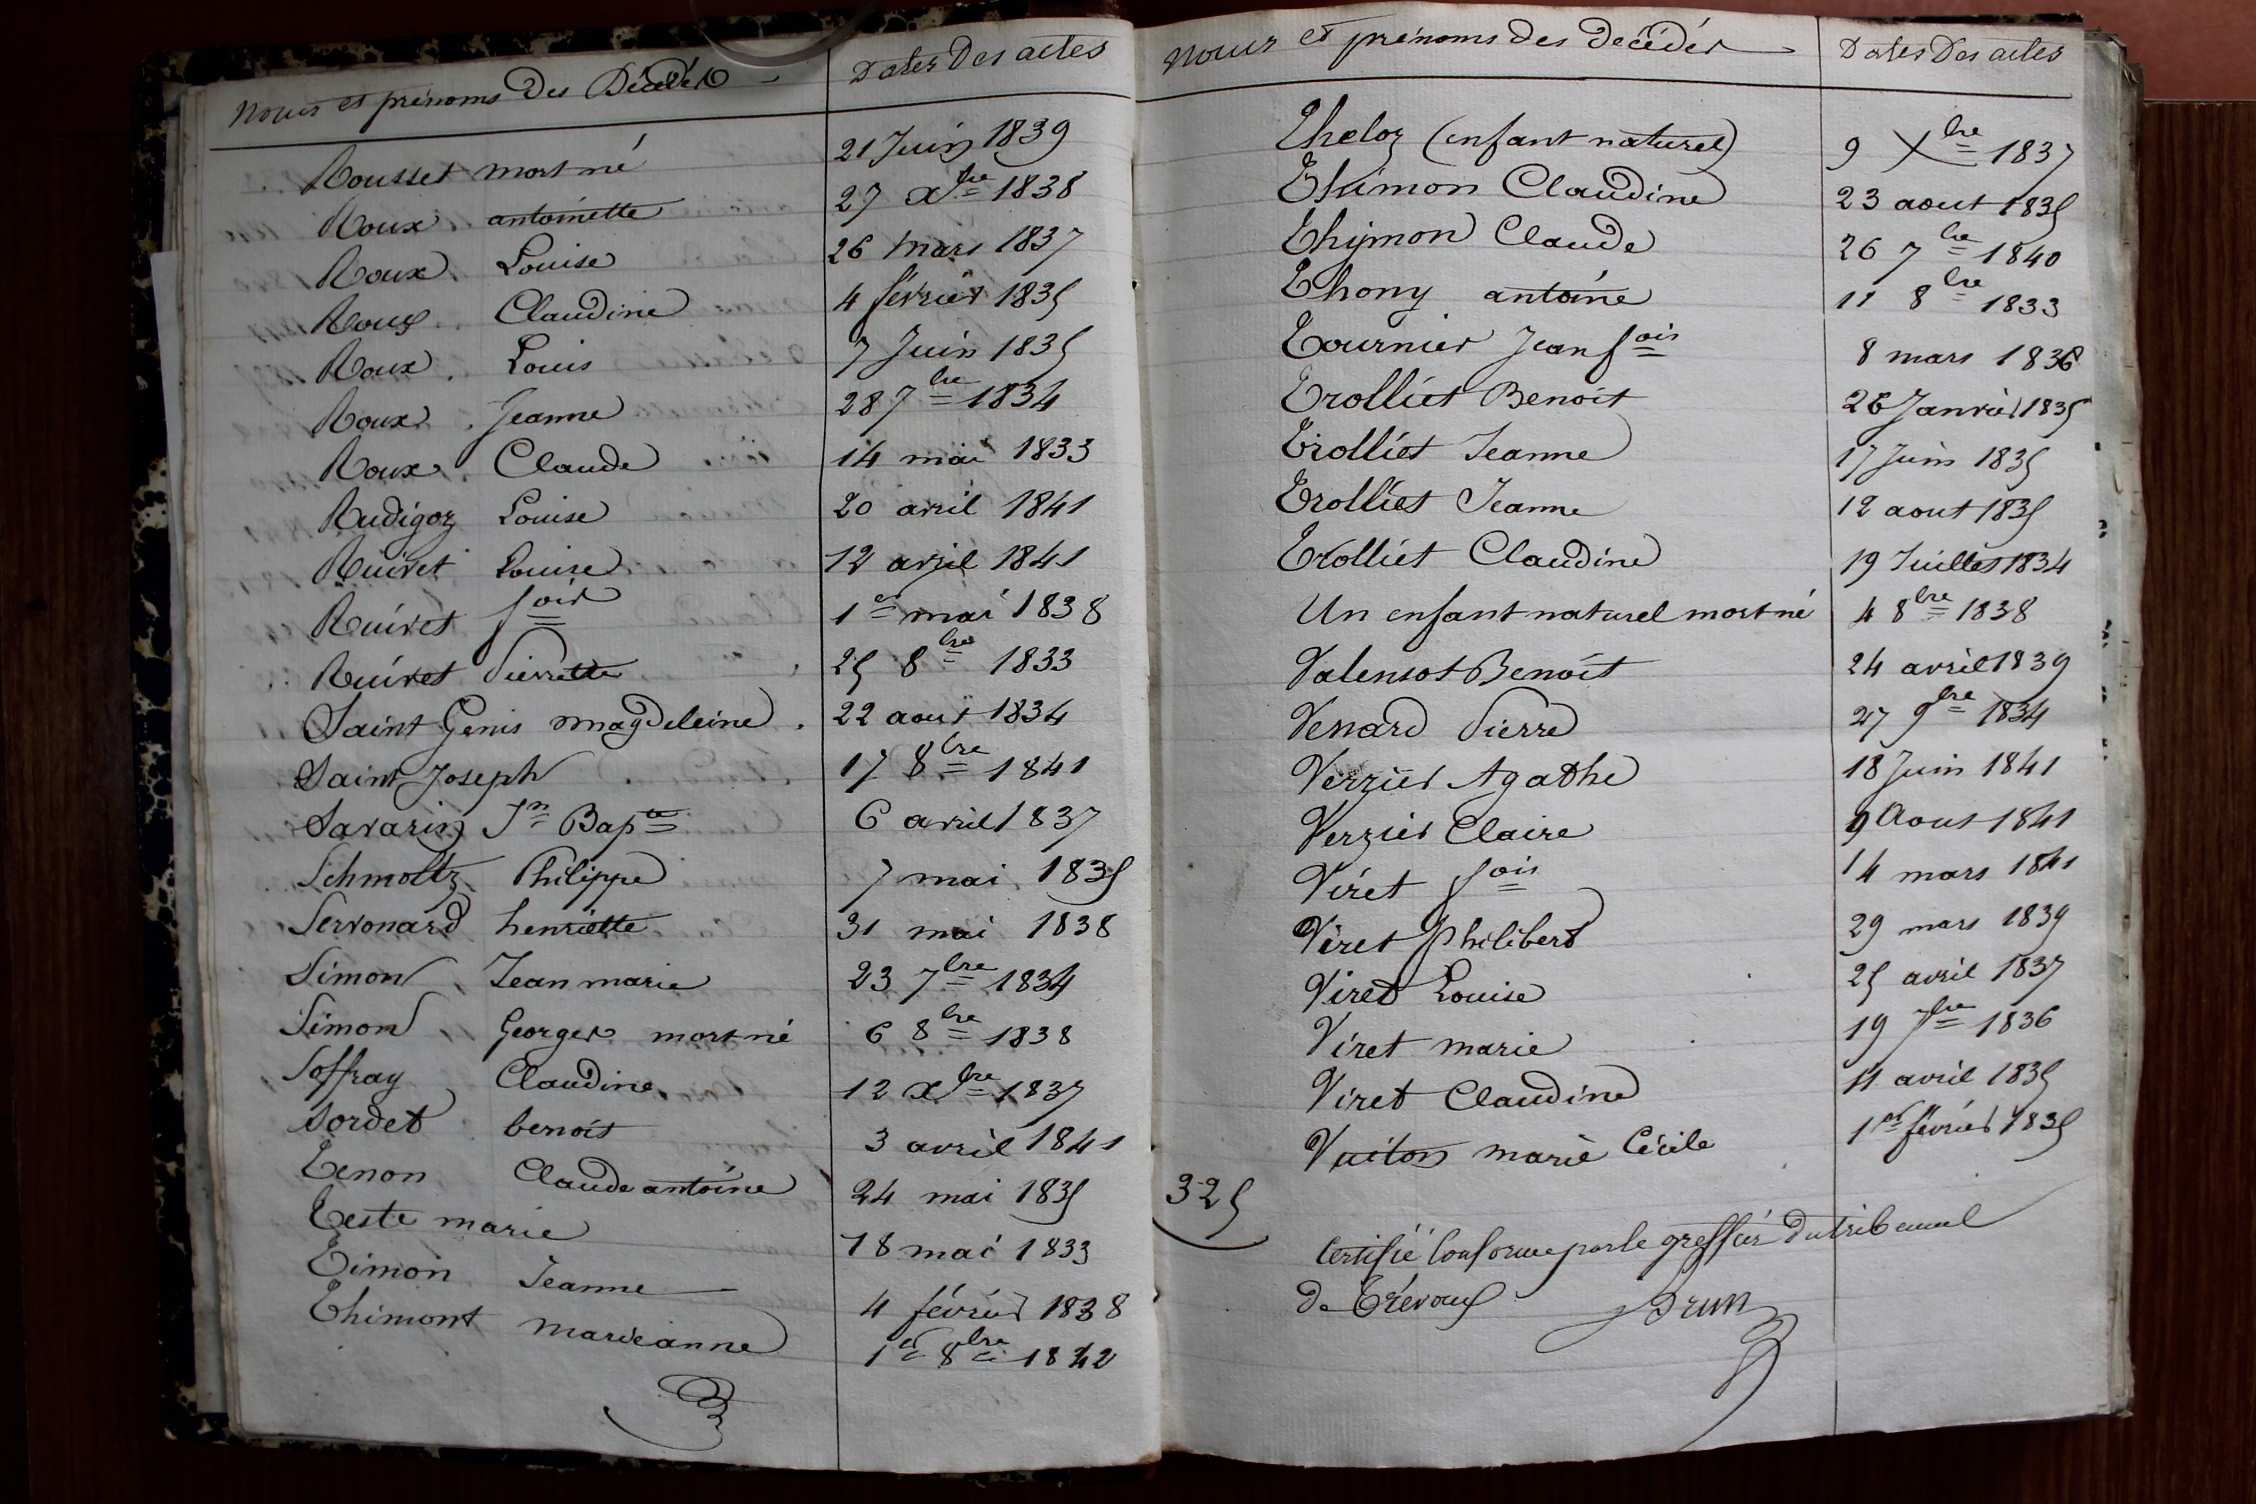 Noms et prénoms des Décédés Dates Des actes
Rousset mort né 21 Juin 1839
Roux antoinette 27 Xbre 1838
Roux Louise 26 Mars 1837
Roux Claudine 4 février 1835
Roux Louis 7 Juin 1835
Roux Jeanne 28 7bre 1834
Roux Claude 14 mai 1833
Rudigoz Louise 20 avril 1841
Ruivet Louise 12 avril 1841
Ruivet fois 1er mai 1838
Ruivet Pierrette 25 8bre 1833
Saint Genis Magdeleine 22 aout 1834
Saint Joseph 17 8bre 1841
Savarin Jn Bapte 6 avril 1837
Schmoltz Philippe 7 mai 1835
Servonard henriette 31 mai 1838
Simon Jean marie 23 7bre 1834
Simon Georges mort né 6 8bre 1838
Soffray Claudine 12 Xbre 1837
Sordet benoit 3 avril 1841
Tenon Claude antoine 24 mai 1835
Teste marie 18 mai 1833
Timon Jeanne 4 février 1838
Thimont marieanne 1er 8bre 1842
Noms et prénoms des décédés Dates Des actes
Theloz (enfant naturel) 9 Xbre 1837
Thimon Claudine 23 aout 1835
Thijmon Claude 26 7bre 1840
Thony antoine 11 8bre 1833
Tournier Jean fois 8 mars 1836
Trolliet Benoit 26 Janvier 1835
Trolliet Jeanne 17 Juin 1835
Trolliet Jeanne 12 aout 1835
Trolliet Claudine 19 Juillet 1834
Un enfant naturel mort né 4 8bre 1838
Valensot Benoit 24 avril 1839
Venard Pierre 27 9bre 1834
Verzier Agathe 18 Juin 1841
Verzier Claire 9 Aout 1841
Viret fois 14 mars 1841
Viret Philibert 29 mars 1839
Viret Louise 25 avril 1837
Viret marie 19 7bre 1836
Viret Claudine 11 avril 1835
Vuiton marie Cécile 1er février 1835
325
Certifié Conforme par le greffier du tribunal
de Trévoux Brun